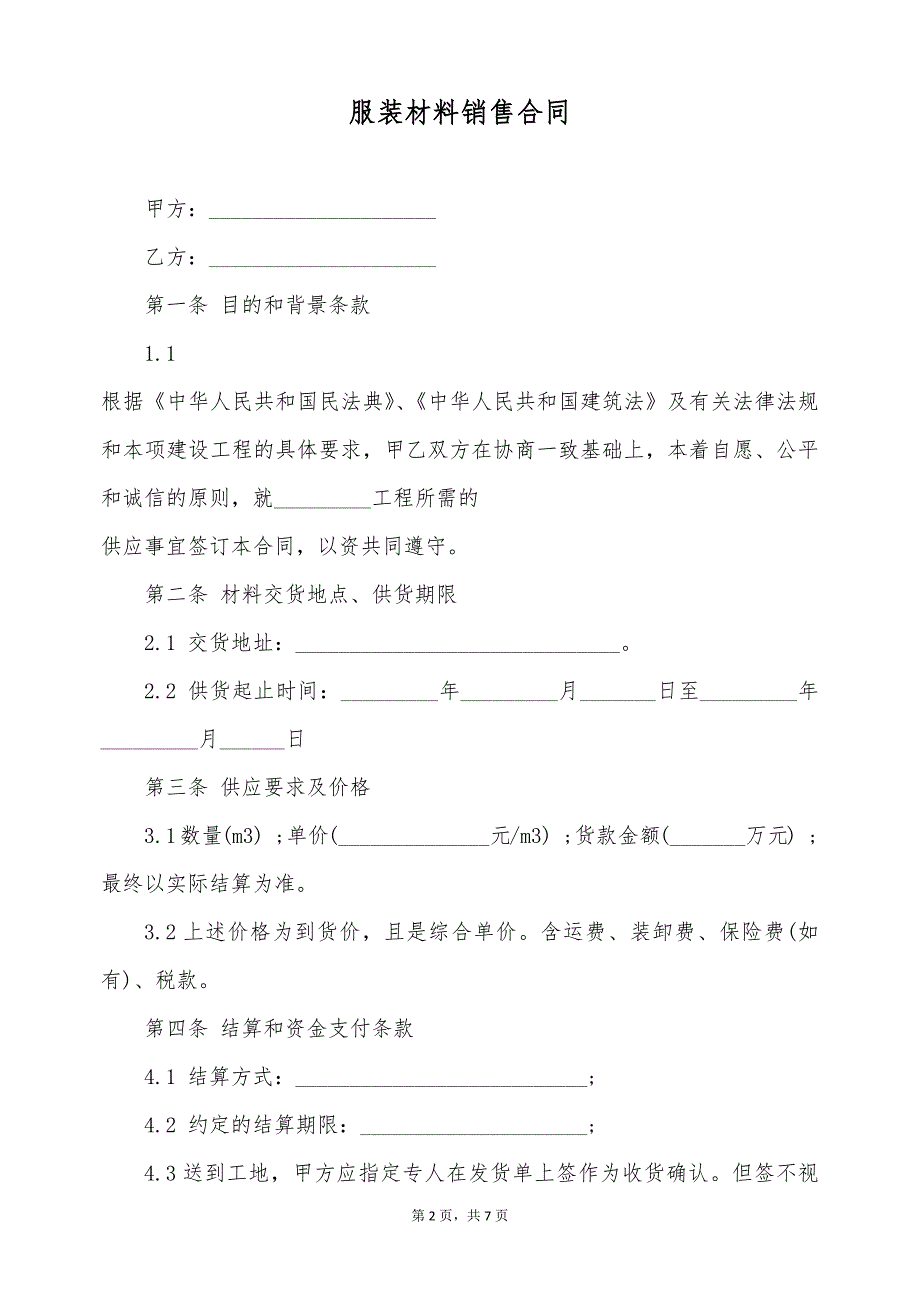 服装材料销售合同
甲方：_____________________
乙方：_____________________
第一条 目的和背景条款
1.1
根据《中华人民共和国民法典》、《中华人民共和国建筑法》及有关法律法规
和本项建设工程的具体要求，甲乙双方在协商一致基础上，本着自愿、公平
和诚信的原则，就_________工程所需的
供应事宜签订本合同，以资共同遵守。
第二条 材料交货地点、供货期限
2.1 交货地址：______________________________。
2.2 供货起止时间：_________年_________月_______日至_________年
_________月______日
第三条 供应要求及价格
3.1数量(m3) ;单价(______________元/m3) ;货款金额(_______万元) ;
最终以实际结算为准。
3.2上述价格为到货价，且是综合单价。含运费、装卸费、保险费(如
有)、税款。
第四条 结算和资金支付条款
4.1 结算方式：___________________________;
4.2 约定的结算期限：_____________________;
4.3送到工地，甲方应指定专人在发货单上签作为收货确认。但签不视
第 2 页，共 7 页